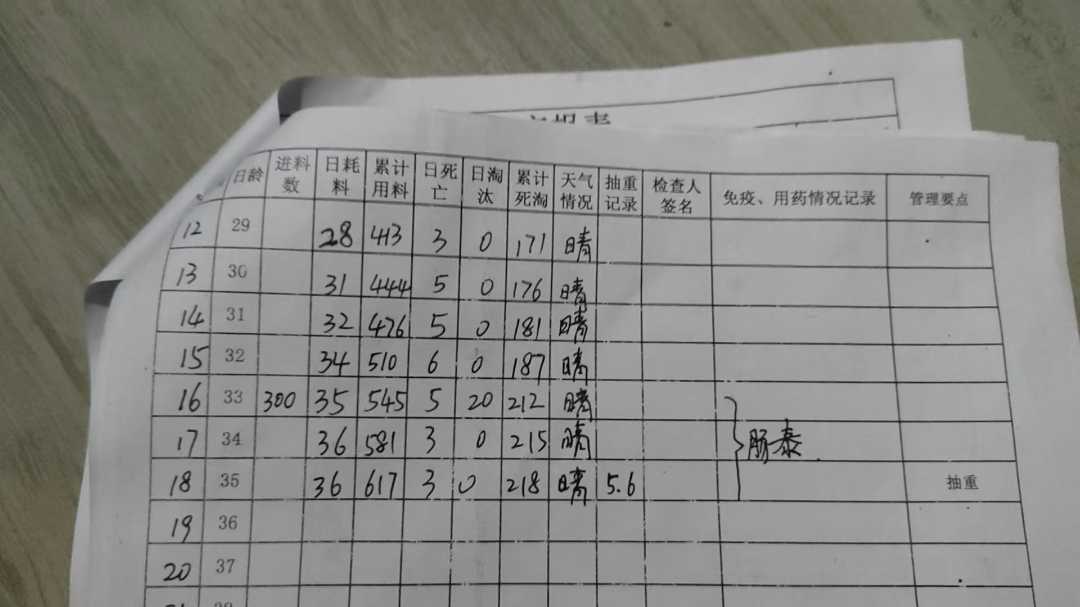 日报表
日龄 进料数 日耗料 累计用料 日死亡 日淘汰 累计死淘 天气情况 抽重记录 检查人签名 免疫、用药情况记录 管理要点
12 29 28 413 3 0 171 晴
13 30 31 444 5 0 176 晴
14 31 32 476 5 0 181 晴
15 32 34 510 6 0 187 晴
16 33 300 35 545 5 20 212 晴
17 34 36 581 3 0 215 晴 肠泰
18 35 36 617 3 0 218 晴 5.6 抽重
19 36
20 37